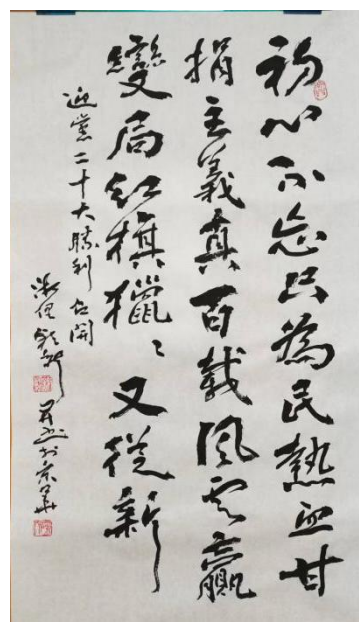 初心不忘只為民熱血甘
捐主義真百載風雲贏
變局紅旗獵〻又從新
迎黨二十大勝利召開
并書於京華